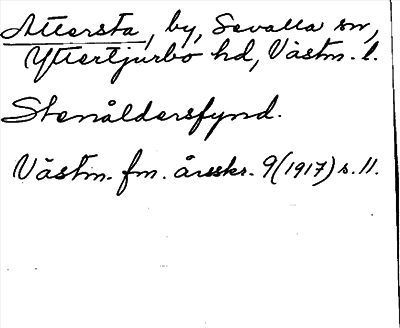 Attersta, by, Sevalla sn,
Yttertjurbo hd, Västm. l.
Stenåldersfynd.
Västm. fm. årsskr. 9 (1917) s. 11.